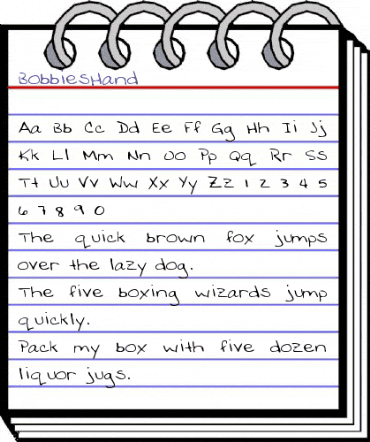 BobbiesHand
Aa Bb Cc Dd Ee Ff Gg Hh Ii Jj
Kk Ll Mm Nn Oo Pp Qq Rr Ss
Tt Uu Vv Ww Xx Yy Zz 1 2 3 4 5
6 7 8 9 0
The quick brown fox jumps
over the lazy dog.
The five boxing wizards jump
quickly.
Pack my box with five dozen
liquor jugs.